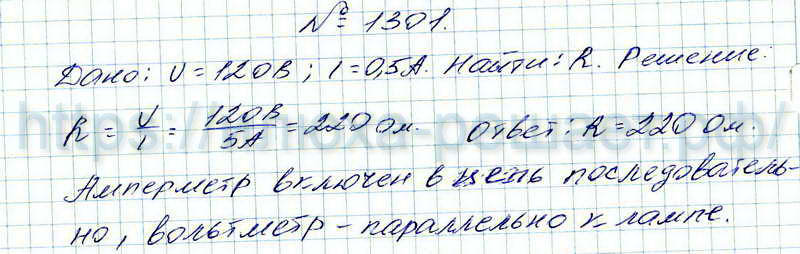 № 1301.
Дано: U = 120В; I = 0,5А. Найти: R. Решение:
R = U/I = 120В/5А = 220 Ом. Ответ: R = 220 Ом.
Амперметр включен в цепь последователь-
но, вольтметр - параллельно к лампе.